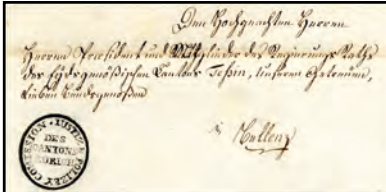 Den Hochgeachten Herren
Herren Præsident und Mitglieder des Regierungs Raths
der Eydgenößischen Cantons Teßin, unseren Getreuen,
Lieben Bundsgenoßen
in Bellenz
COMMISSION · IUSTIZ POLIZEY
DES
CANTONS
ZÜRICH